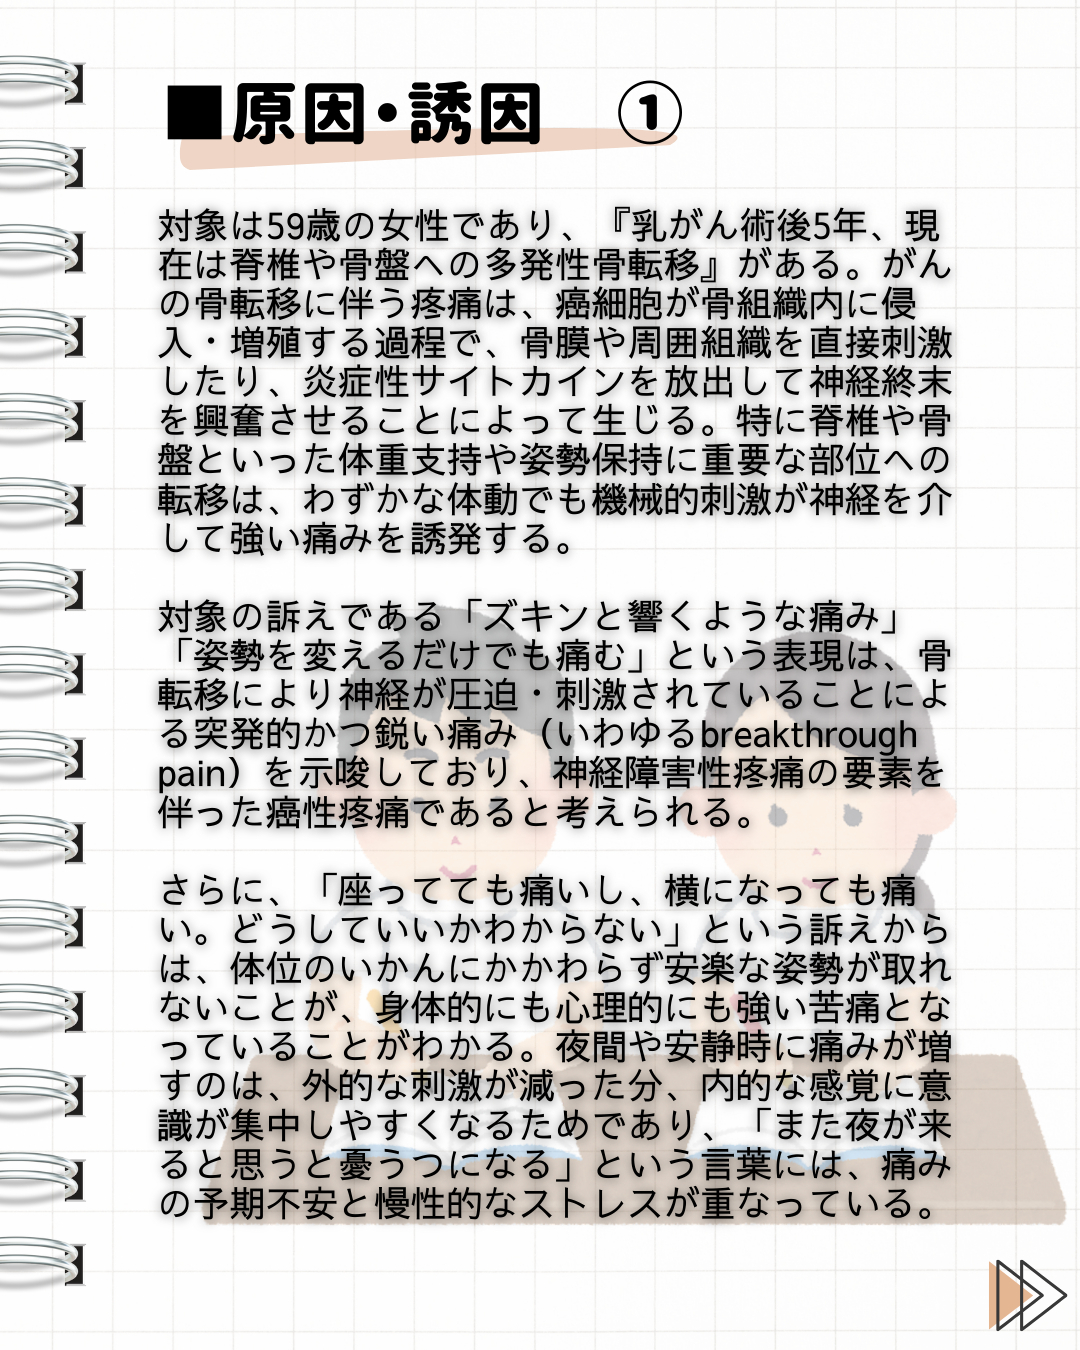 ■原因・誘因 ①
対象は59歳の女性であり、『乳がん術後5年、現
在は脊椎や骨盤への多発性骨転移』がある。がん
の骨転移に伴う疼痛は、癌細胞が骨組織内に侵
入・増殖する過程で、骨膜や周囲組織を直接刺激
したり、炎症性サイトカインを放出して神経終末
を興奮させることによって生じる。特に脊椎や骨
盤といった体重支持や姿勢保持に重要な部位への
転移は、わずかな体動でも機械的刺激が神経を介
して強い痛みを誘発する。
対象の訴えである「ズキンと響くような痛み」
「姿勢を変えるだけでも痛む」という表現は、骨
転移により神経が圧迫・刺激されていることによ
る突発的かつ鋭い痛み（いわゆるbreakthrough
pain）を示唆しており、神経障害性疼痛の要素を
伴った癌性疼痛であると考えられる。
さらに、「座ってても痛いし、横になっても痛
い。どうしていいかわからない」という訴えから
は、体位のいかんにかかわらず安楽な姿勢が取れ
ないことが、身体的にも心理的にも強い苦痛とな
っていることがわかる。夜間や安静時に痛みが増
すのは、外的な刺激が減った分、内的な感覚に意
識が集中しやすくなるためであり、「また夜が来
ると思うと憂うつになる」という言葉には、痛み
の予期不安と慢性的なストレスが重なっている。